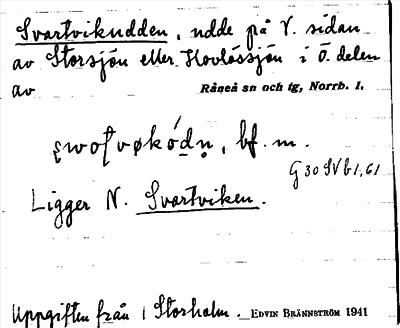 Svartvikudden, udde på V. sidan
av Storsjön eller Hovlössjön i Ö. delen
av Råneå sn och tg, Norrb. l.
bf. m.
G 30 SV b 1, 61
Ligger N. Svartviken.
Uppgiften från i Storholm. EDVIN BRÄNNSTRÖM 1941